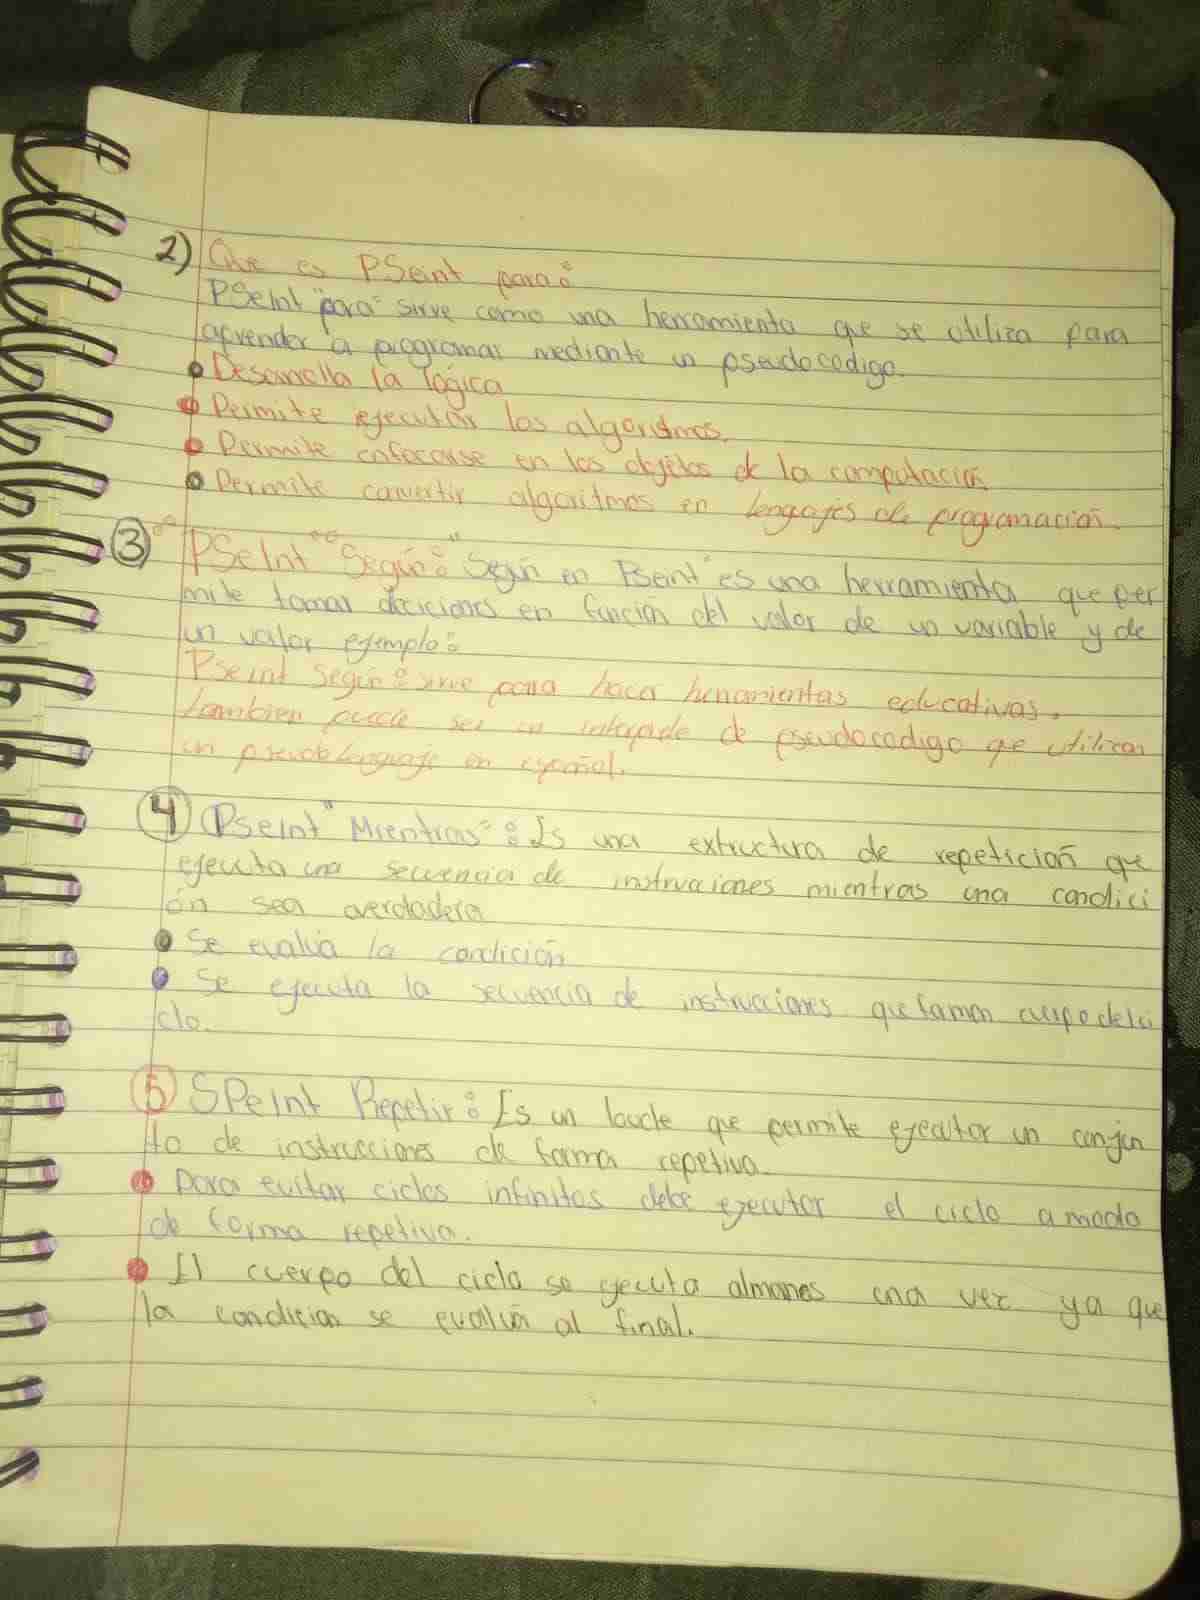 2) Que es PSeint para:
PSeInt "para" sirve como una herramienta que se utiliza para
aprender a programar mediante un pseudocodigo.
• Desarrolla la lógica
• Permite ejecutar los algoritmos.
• Permite enfocarse en los objetos de la computación
• Permite convertir algoritmos en lenguajes de programación.
3) PSeInt "Según": "Según en Pseint" es una herramienta que per
mite tomar deciciones en función del valor de un variable y de
un valor ejemplo:
Pseint Según: sirve para hacer herramientas educativas.
tambien puede ser un de pseudocodigo que utilizan
un pseudolenguaje en español.
4) Pseint "Mientras": Es una extructura de repetición que
ejecuta una secuencia de instruciones mientras una condici
ón sea averdadera
• Se evalúa la condición
• Se ejecuta la secuencia de instrucciones que forman cuerpo del ci
clo.
5) SPeint Repetir: Es un que permite ejecutar un conjun
to de instrucciones de forma repetiva.
• para evitar ciclos infinitos debe ejecutar el ciclo a modo
de forma repetiva.
• El cuerpo del ciclo se ejecuta almenos una vez ya que
la condición se evalúa al final.